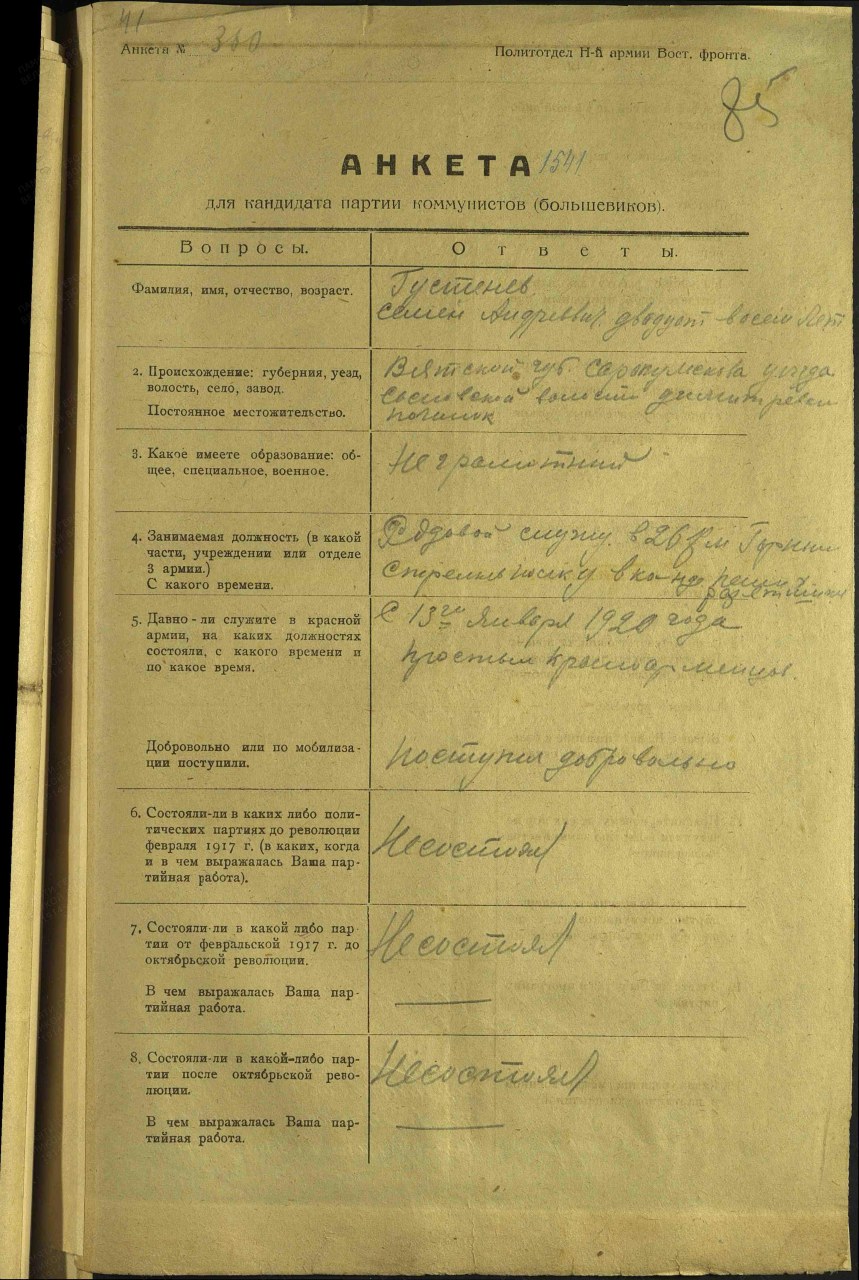 41
Анкета № 350
Политотдел Н-й армии Вост. фронта.
85
АНКЕТА 1541
для кандидата партии коммунистов (большевиков).
Вопросы.
Ответы.
Фамилия, имя, отчество, возраст.
Густенев
Семен Андреевич двадцат восем лет
2. Происхождение: губерния, уезд,
волость, село, завод.
Постоянное местожительство.
Вятской губ. Сарапулскова уезда
Сосновской волости
починок
3. Какое имеете образование: об-
щее, специальное, военное.
Не грамотний
4. Занимаемая должность (в какой
части, учреждении или отделе
3 армии.)
С какого времени.
Рядовой служу в 26
в
5. Давно-ли служите в красной
армии, на каких должностях
состояли, с какого времени и
по какое время.
С 13го Января 1920 года
простым красноармейцом.
Добровольно или по мобилиза-
ции поступили.
поступил добровально
6. Состояли-ли в каких либо поли-
тических партиях до революции
февраля 1917 г. (в каких, когда
и в чем выражалась Ваша пар-
тийная работа).
Несостоял
7. Состояли-ли в какой либо пар-
тии от февральской 1917 г. до
октябрьской революции.
В чем выражалась Ваша пар-
тийная работа.
Несостоял
8. Состояли-ли в какой-либо пар-
тии после октябрьской рево-
люции.
В чем выражалась Ваша пар-
тийная работа.
Несостоял